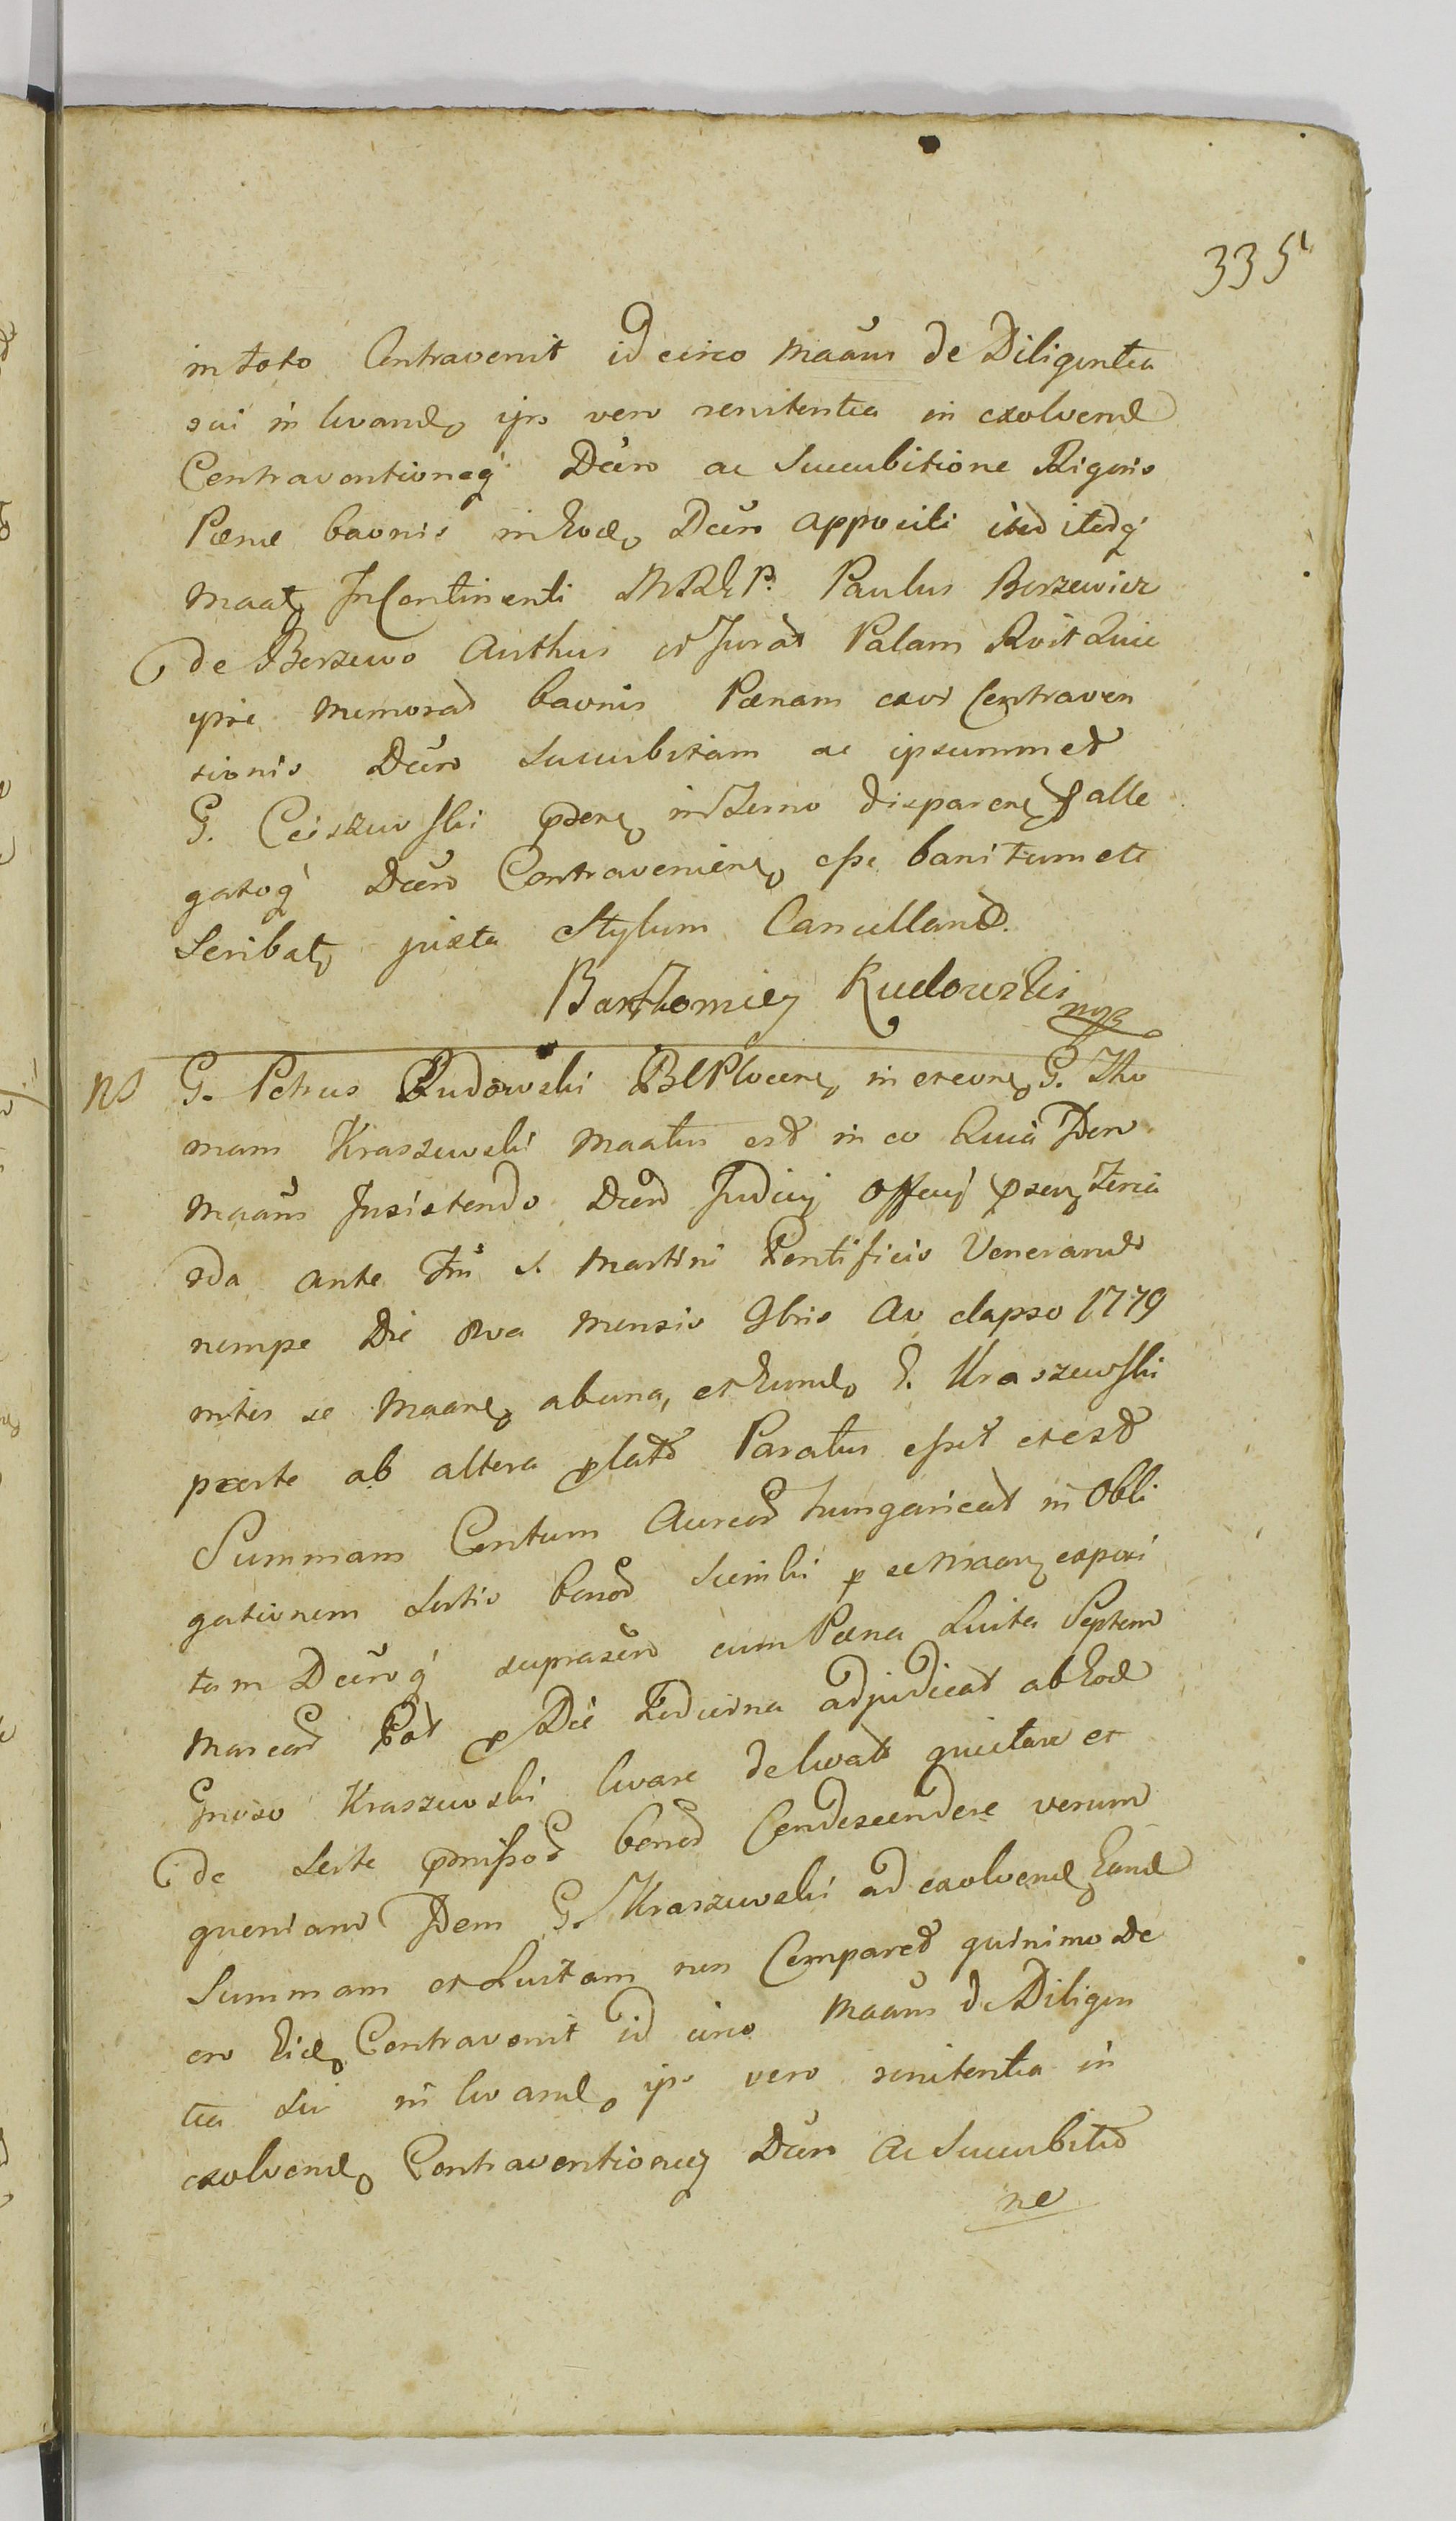 335
in toto Contravenit id circo Maãns de Diligentia
sui in levand, ips vero renitentia in exolvend
Contraventioneq Dcẽro ac Succubitione Rigoris
Pœnæ bannis in Eod, Dcẽro appositi
Maat, In Continenti MRSR P. Paulus Borzewicz
de Borzewo Authus et Jurat Palam Rvit Quia
ipse memorat bannis Pœnam exvi Contraven
tionis Dcẽro Succubitam ac ipsummet
G. Ciszewski in Termo disparen, alle
gatoq Dcẽro Contravenien, esse banitum etc
Scribat, juxta Stylum Cancelland.
Bartłomiej Rudowski mp
NS G. Petrus Rudowski BCPlocen, in et con, G. Tho
mam Kraszewski Maatus est in eo Quia Idem
Maãns Insistendo Dcẽro Judicij Officij psen, Feria
2da ante Fm S. Martini Pontificis Venerand
nempe Die 8va Mensis 9bris Ao elapso 1779
inter se Maan, ab una, et Eund, G. Kraszewski
parte ab altera plato Paratus esset et est
Summam Centum Aureor hungarical in Obli
gationem Sortis bonor Suinki p se Maan, exposi
tam Dcẽroq suprascro cum Pœna Luita Septem
Marcar Pol p Die hodierna adjudicat ab Eod
Gnoso Kraszewski levare de levat quietare et
de Sorte pmissor bonor Condescendere verum
quoniam Idem G. Kraszewski ad exolvend, Eand
Summam et Luitam non Comparet quinimo De
cro Eid, Contravenit id circo Maãns de Diligen
tia Sui in levand, ips vero renitentia in
exolvend, Contraventioneq Dcẽro ac Succubitio
ne